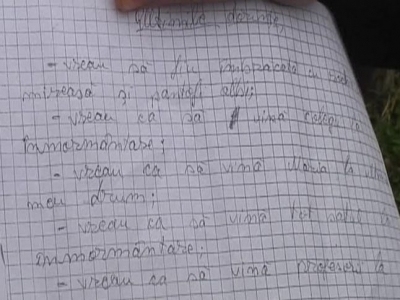 Ultimele dorințe,
- vreau să fiu îmbrăcată cu
mireasă și pantofi albi;
- vreau ca să vină la
înmormântare;
- vreau ca să vină Maria la
meu drum;
- vreau ca să vină tot satul la
înmormântare;
- vreau ca să vină profesori la